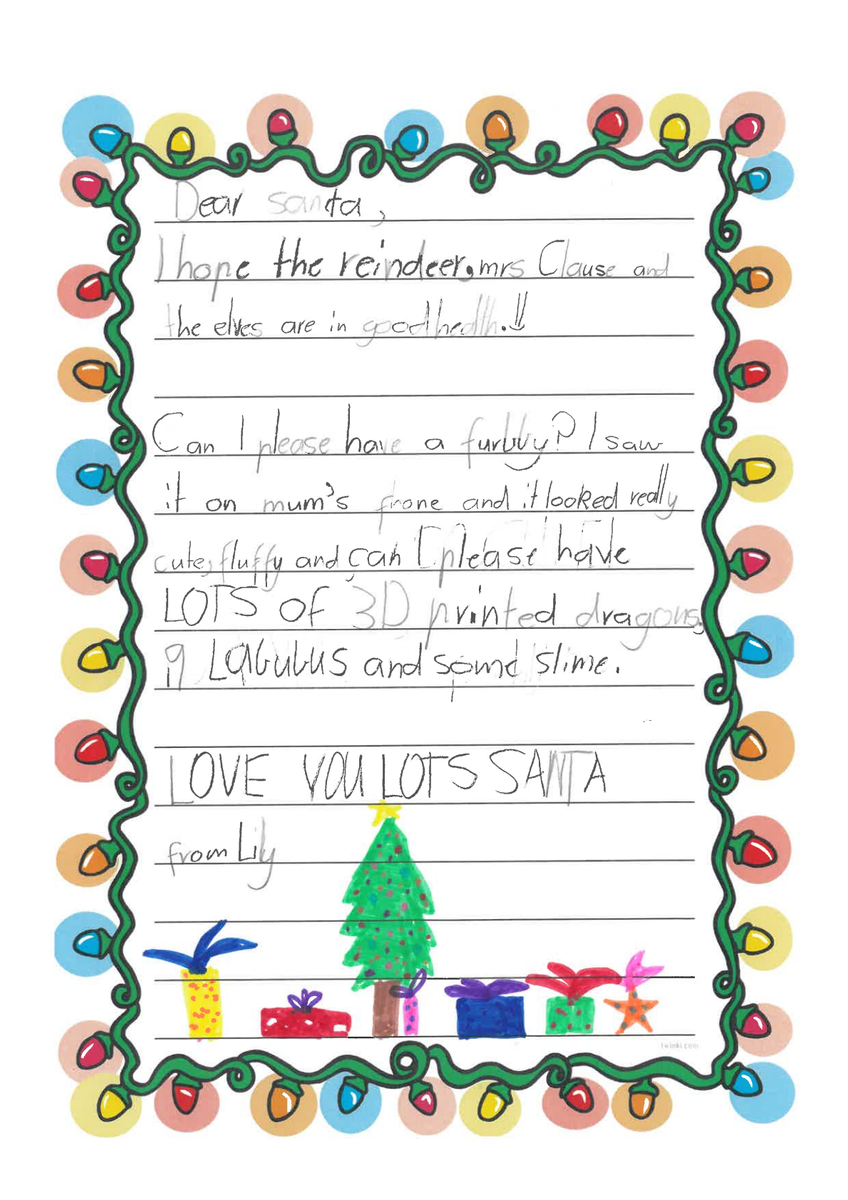 Dear santa,
I hope the reindeer, mrs Clause and
the elves are in good health.!!
Can I please have a furbby? I saw
it on mum's phone and it looked really
cute, fluffy and can I please have
LOTS of 3D printed dragons,
9 Labubus and some slime.
LOVE YOU LOTS SANTA
from Lily
twinkl.com